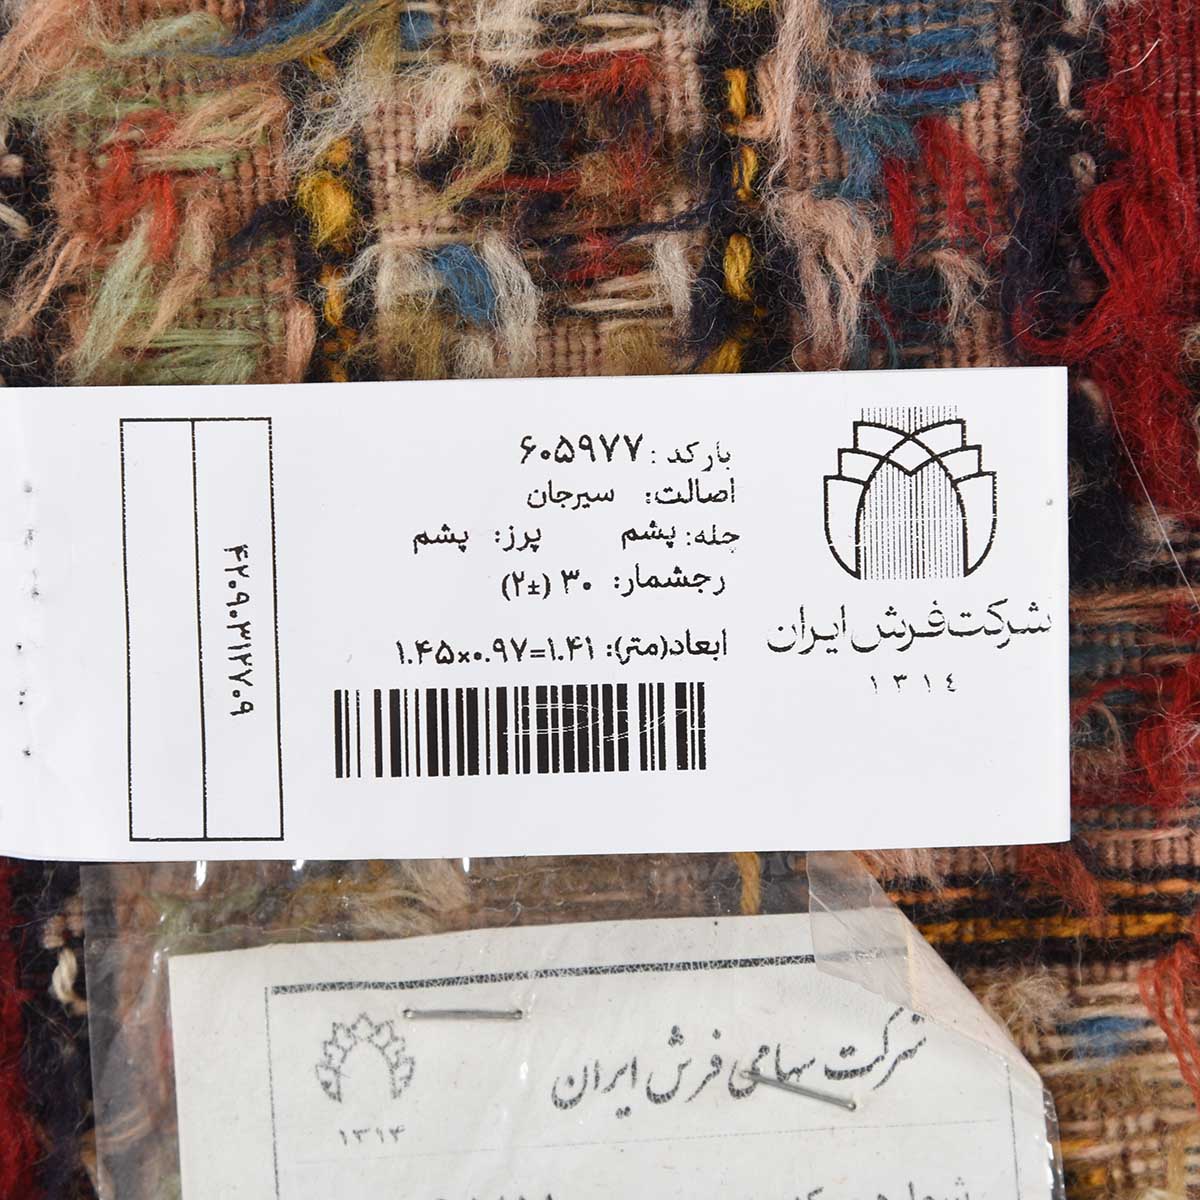 بارکد: ۶۰۵۹۷۷
اصالت: سیرجان
چله: پشم پرز: پشم
رجشمار: ۳۰ (±۲)
ابعاد(متر): ۱.۴۵×۰.۹۷=۱.۴۱
شرکت فرش ایران
۱۳۱۴
۴۲۰۹۰۳۱۲۷۰۹
شرکت سهامی فرش ایران
۱۳۱۴